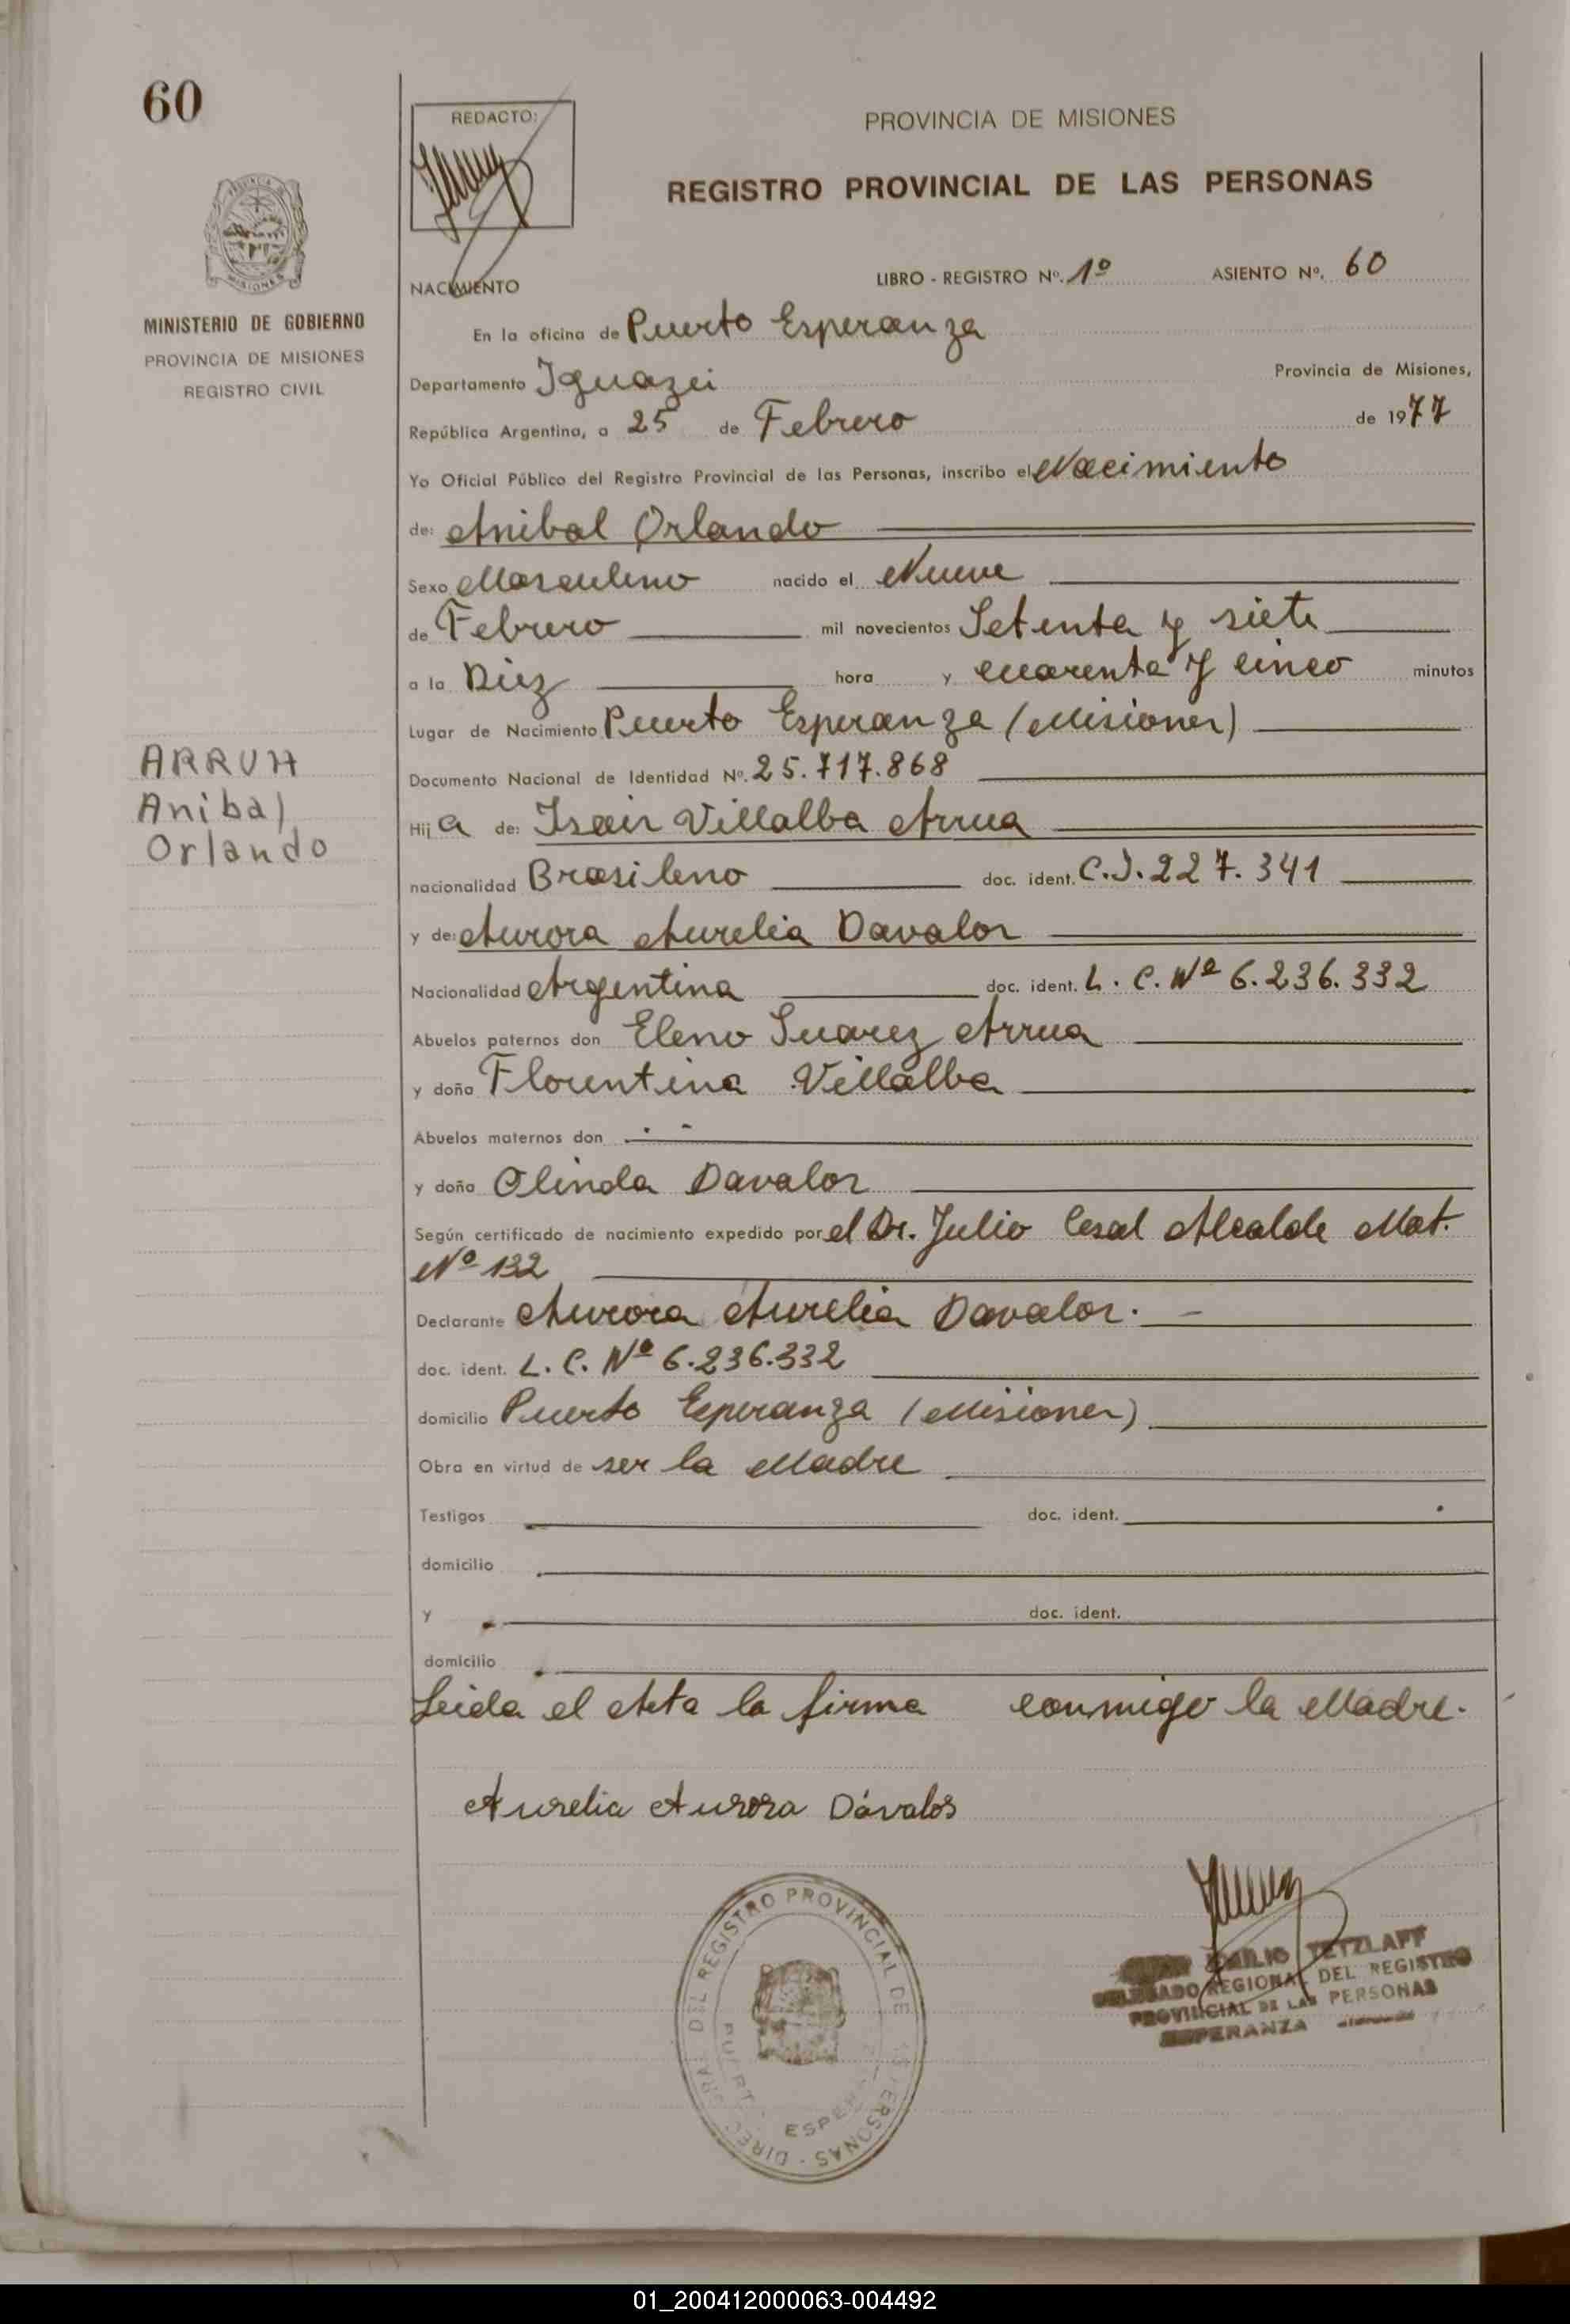 60
REDACTO:
PROVINCIA DE MISIONES
REGISTRO PROVINCIAL DE LAS PERSONAS
NACIMIENTO
LIBRO - REGISTRO Nº. 1º ASIENTO Nº. 60
MINISTERIO DE GOBIERNO
PROVINCIA DE MISIONES
REGISTRO CIVIL
En la oficina de Puerto Esperanza
Departamento Iguazú Provincia de Misiones,
República Argentina, a 25 de Febrero de 1977
Yo Oficial Público del Registro Provincial de las Personas, inscribo el Nacimiento
de: Anibal Orlando
Sexo Masculino nacido el Nueve
de Febrero mil novecientos Setenta y siete
a la Diez hora y cuarenta y cinco minutos
Lugar de Nacimiento Puerto Esperanza (Misiones)
Documento Nacional de Identidad Nº. 25.717.868
ARRUA
Anibal
Orlando
Hij a de: Isair Villalba Arrua
nacionalidad Brasileno doc. ident. C.I. 227.341
y de: Aurora Aurelia Davalos
Nacionalidad Argentina doc. ident. L. C. Nº 6.236.332
Abuelos paternos don Eleno Suarez Arrua
y doña Florentina Villalba
Abuelos maternos don
y doña Olinda Davalos
Según certificado de nacimiento expedido por el Dr. Julio Cesal Alcalde Mat.
Nº 132
Declarante Aurora Aurelia Davalos. -
doc. ident. L. C. Nº 6.236.332
domicilio Puerto Esperanza (Misiones)
Obra en virtud de ser la Madre
Testigos doc. ident.
domicilio
y doc. ident.
domicilio
Leida el Acta la firma conmigo la Madre.
Aurelia Aurora Dávalos
DIREC RAL DEL REGISTRO PROVINCIAL DE PERSONAS
PUERT ESPER
EMILIO TETZLAFF
DELEGADO REGIONAL DEL REGISTRO
PROVINCIAL DE LAS PERSONAS
ESPERANZA
01_200412000063-004492